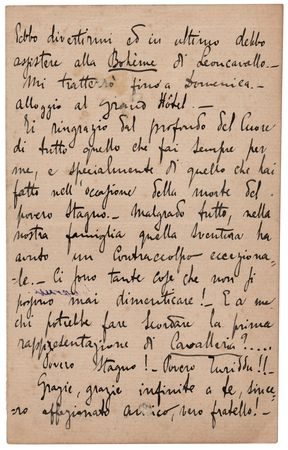 Ebbo divertirmi ed in ultimo debbo
assistere alla Bohème di Leoncavallo._
Mi tratterrò fino a Domenica._
alloggio al Grand Hôtel._
Ti ringrazio dal profondo del Cuore
di tutto quello che fai sempre per
me, e specialmente di quello che hai
fatto nell'occasione della morte del
povero Stagno._ Malgrado tutto, nella
nostra famiglia quella sventura ha
avuto un Contraccolpo eccezziona=
=le._ Ci sono tante cose che non si
possono mai dimenticare! _ E a me
chi potrebbe fare scordare la prima
rappresentazione di Cavalleria?....
Povero Stagno! _ Povero Turiddu!!_
Grazie, grazie infinite a te, since=
=ro affezionato amico, vero fratello! _